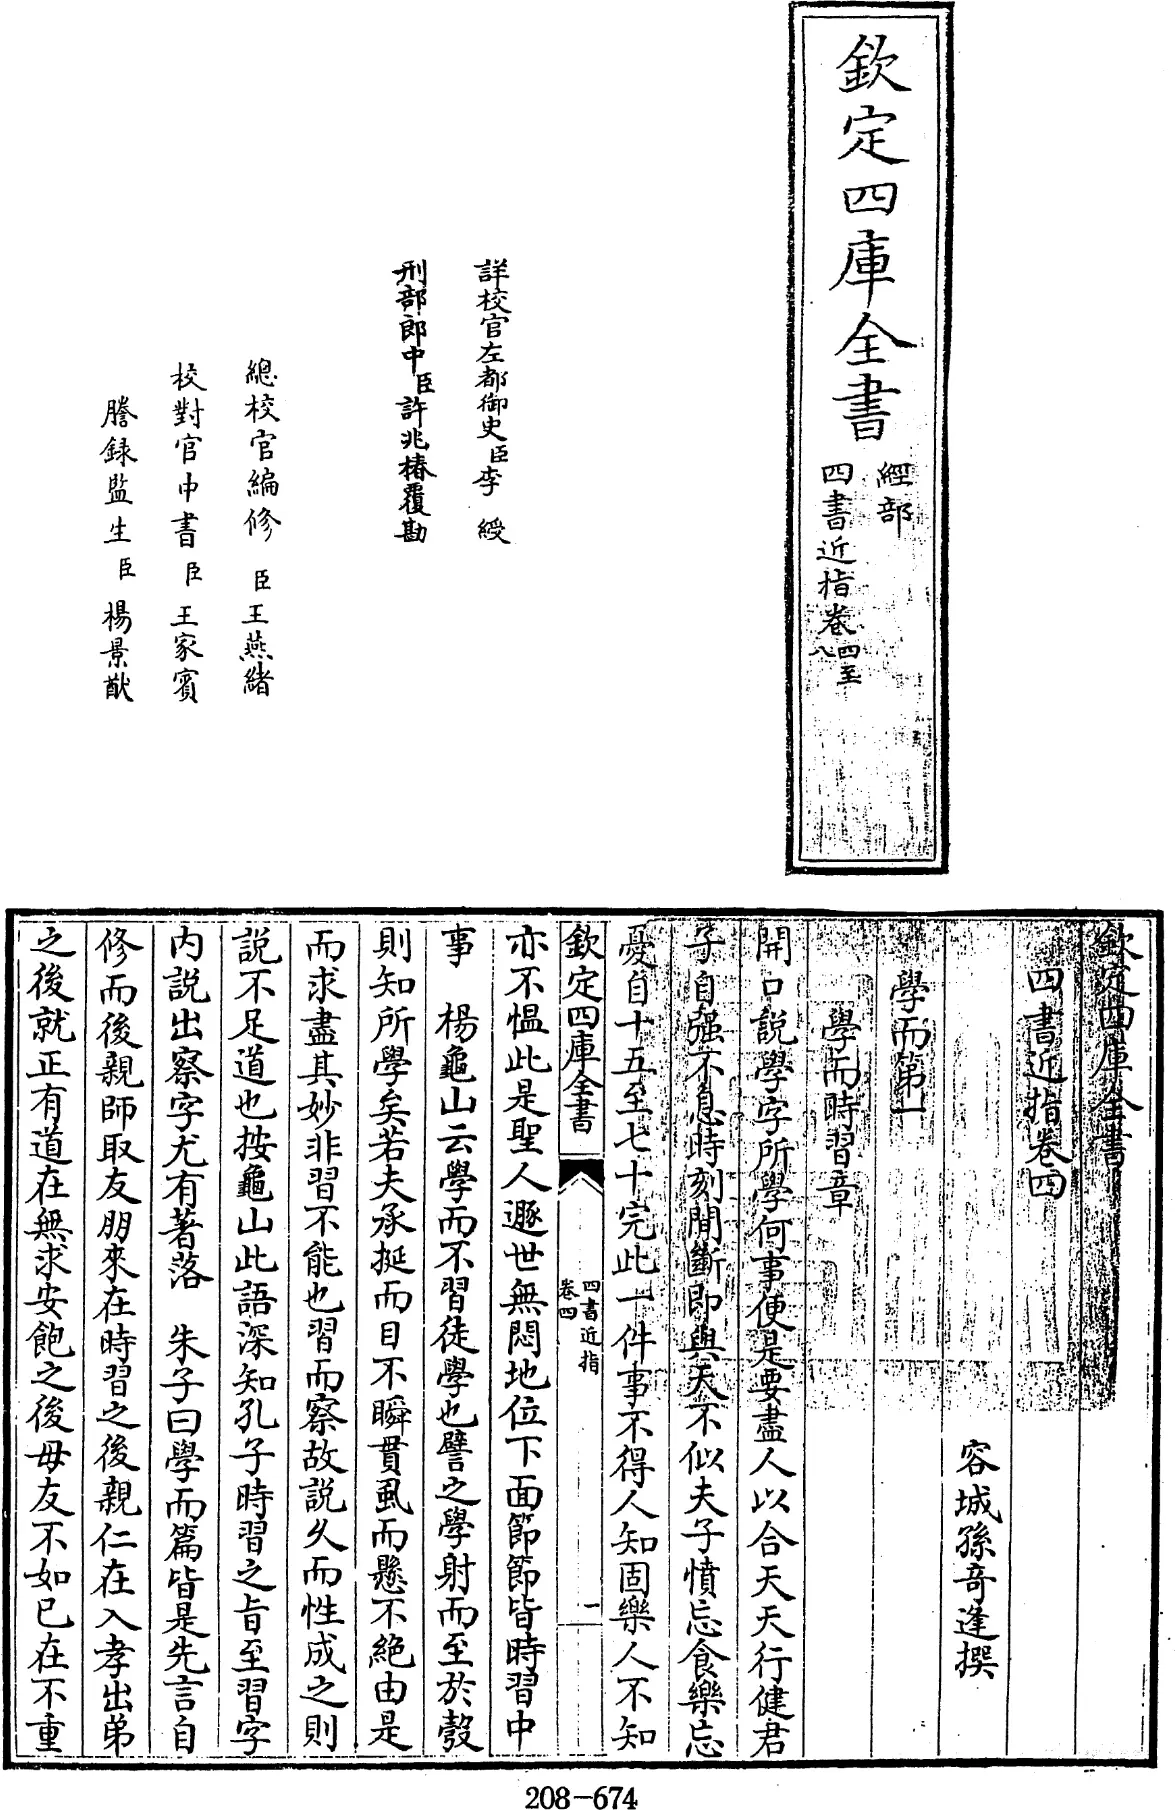 欽定四庫全書
經部
四書近指卷四至八
詳校官左都御史臣李綬
刑部郎中臣許兆椿覆勘
總校官編修臣王燕緒
校對官中書臣王家賓
謄錄監生臣楊景猷
欽定四庫全書
四書近指卷四
容城孫奇逢撰
學而第一
學而時習章
開口說學字所學何事便是要盡人以合天天行健君
子自强不息時刻間斷即與天不似夫子憤忘食樂忘
憂自十五至七十完此一件事不得人知固樂人不知
欽定四庫全書
四書近指
卷四
一
亦不愠此是聖人遯世無悶地位下面節節皆時習中
事 楊龜山云學而不習徒學也譬之學射而至於彀
則知所學矣若夫承挺而目不瞬貫虱而懸不絕由是
而求盡其妙非習不能也習而察故說久而性成之則
說不足道也按龜山此語深知孔子時習之旨至習字
内說出察字尤有著落 朱子曰學而篇皆是先言自
修而後親師取友朋來在時習之後親仁在入孝出弟
之後就正有道在無求安飽之後毋友不如已在不重
208-674